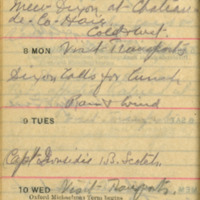 Meet Dixon at Chateau
de Co Haig
Cold & wet.
8 MON Visit Transports
Dixon calls for lunch
Rain & Wind
9 TUES
Capt Dinsdis B. Scotch
10 WED Visit Transports.
Oxford Michaelmas Term begins